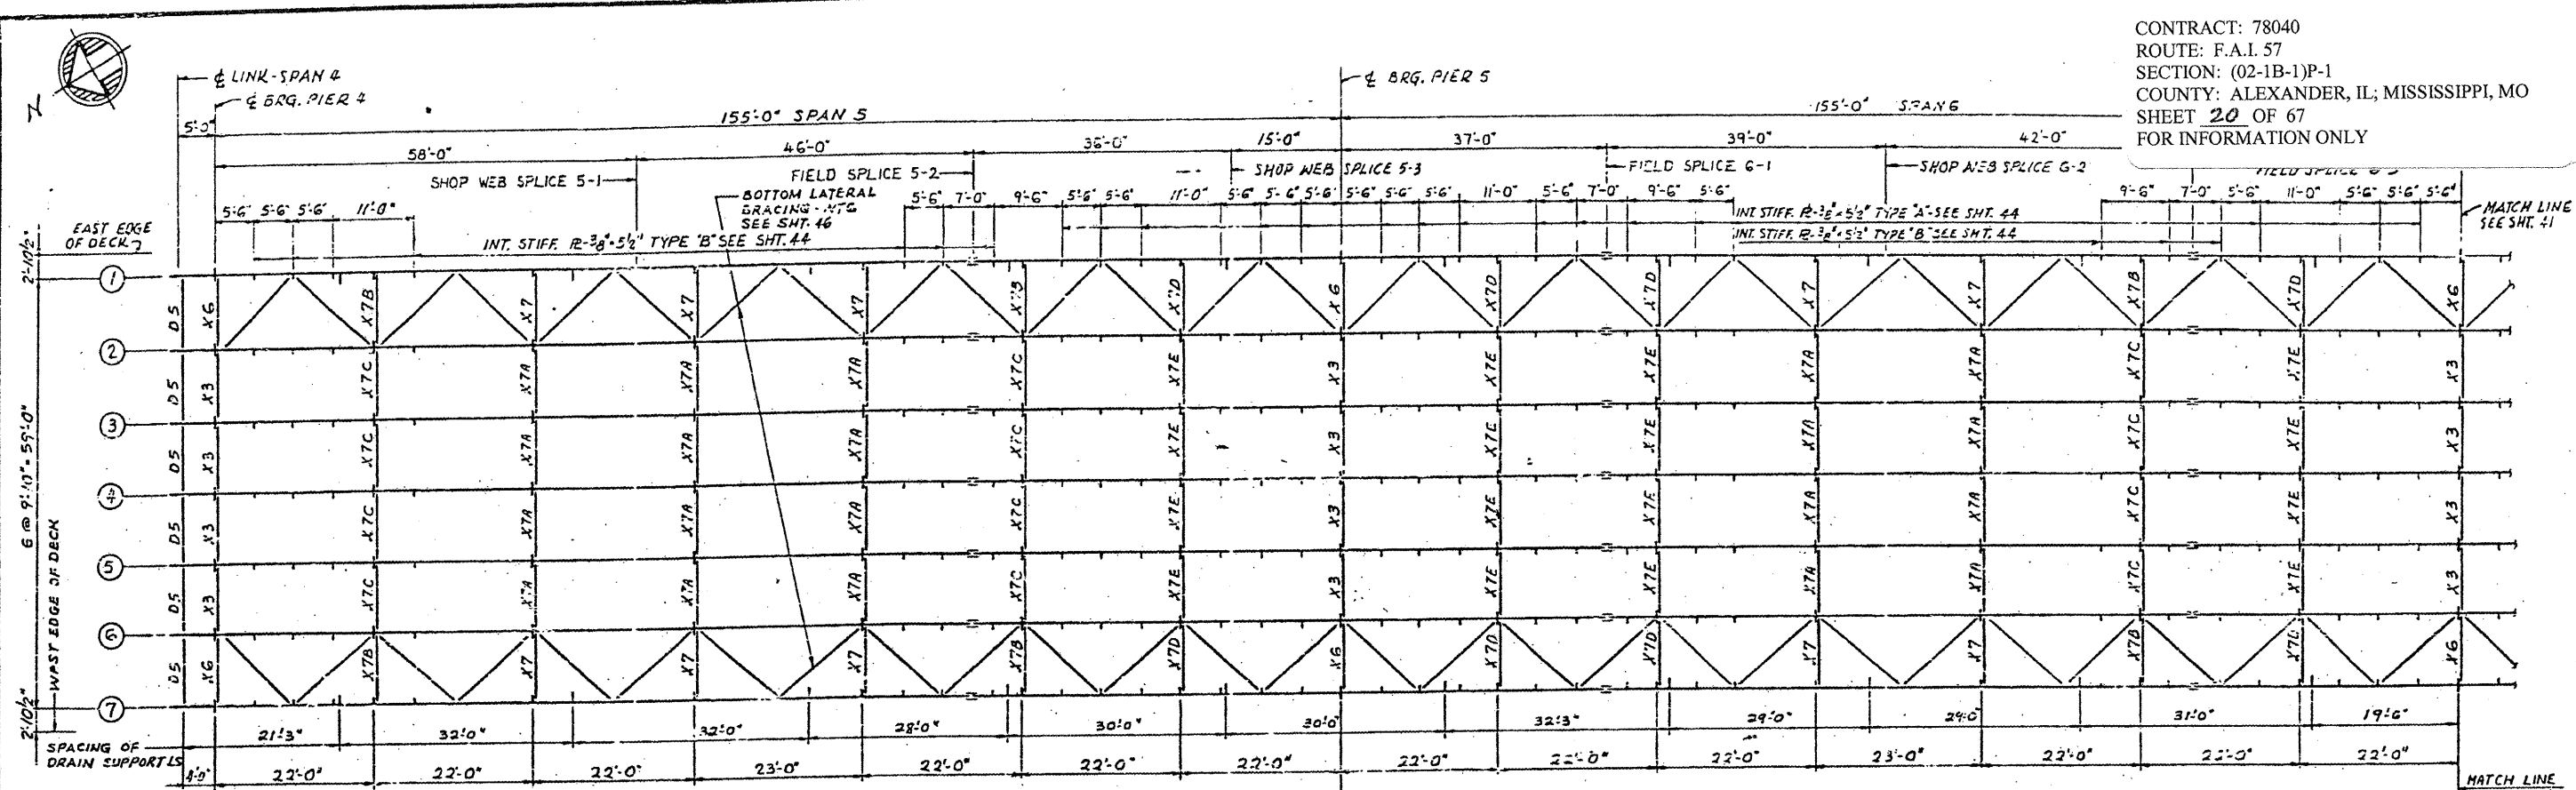 CONTRACT: 78040
ROUTE: F.A.I. 57
SECTION: (02-1B-1)P-1
COUNTY: ALEXANDER, IL; MISSISSIPPI, MO
SHEET 20 OF 67
FOR INFORMATION ONLY
N
℄ LINK-SPAN 4
℄ BRG. PIER 4
℄ BRG. PIER 5
5'-0"
155'-0" SPAN 5
155'-0" SPAN 6
58'-0"
46'-0"
36'-0"
15'-0"
37'-0"
39'-0"
42'-0"
SHOP WEB SPLICE 5-1
FIELD SPLICE 5-2
SHOP WEB SPLICE 5-3
FIELD SPLICE 6-1
SHOP WEB SPLICE 6-2
5'-6" 5'-6" 5'-6" 11'-0"
BOTTOM LATERAL
BRACING
SEE SHT. 46
5'-6" 7'-0" 9'-6" 5'-6" 5'-6" 11'-0" 5'-6" 5'-6" 5'-6" 5'-6" 5'-6" 5'-6" 11'-0" 5'-6" 7'-0" 9'-6" 5'-6"
9'-6" 7'-0" 5'-6" 11'-0" 5'-6" 5'-6" 5'-6"
EAST EDGE
OF DECK
INT. STIFF. ℞-3/8"×5½" TYPE "B" SEE SHT. 44
INT. STIFF. ℞-3/8"×5½" TYPE "A"-SEE SHT. 44
INT. STIFF. ℞-3/8"×5½" TYPE "B"-SEE SHT. 44
MATCH LINE
SEE SHT. 41
2'-10½"
1
D5 X6 X7B X7 X7 X7 X7B X7D X6 X7D X7D X7 X7 X7B X7D X6
2
D5 X3 X7C X7A X7A X7A X7C X7E X3 X7E X7E X7A X7A X7C X7E X3
3
D5 X3 X7C X7A X7A X7A X7C X7E X3 X7E X7E X7A X7A X7C X7E X3
4
D5 X3 X7C X7A X7A X7A X7C X7E X3 X7E X7E X7A X7A X7C X7E X3
5
D5 X3 X7C X7A X7A X7A X7C X7E X3 X7E X7E X7A X7A X7C X7E X3
6
D5 X6 X7B X7 X7 X7 X7B X7D X6 X7D X7D X7 X7 X7B X7D X6
7
6 @ 9'-10" = 59'-0"
WEST EDGE OF DECK
2'-10½"
SPACING OF
DRAIN SUPPORTS
21'-3" 32'-0" 32'-0" 28'-0" 30'-0" 30'-0" 32'-3" 29'-0" 29'-0" 31'-0" 19'-6"
22'-0" 22'-0" 22'-0" 23'-0" 22'-0" 22'-0" 22'-0" 22'-0" 22'-0" 22'-0" 23'-0" 22'-0" 22'-0" 22'-0"
MATCH LINE